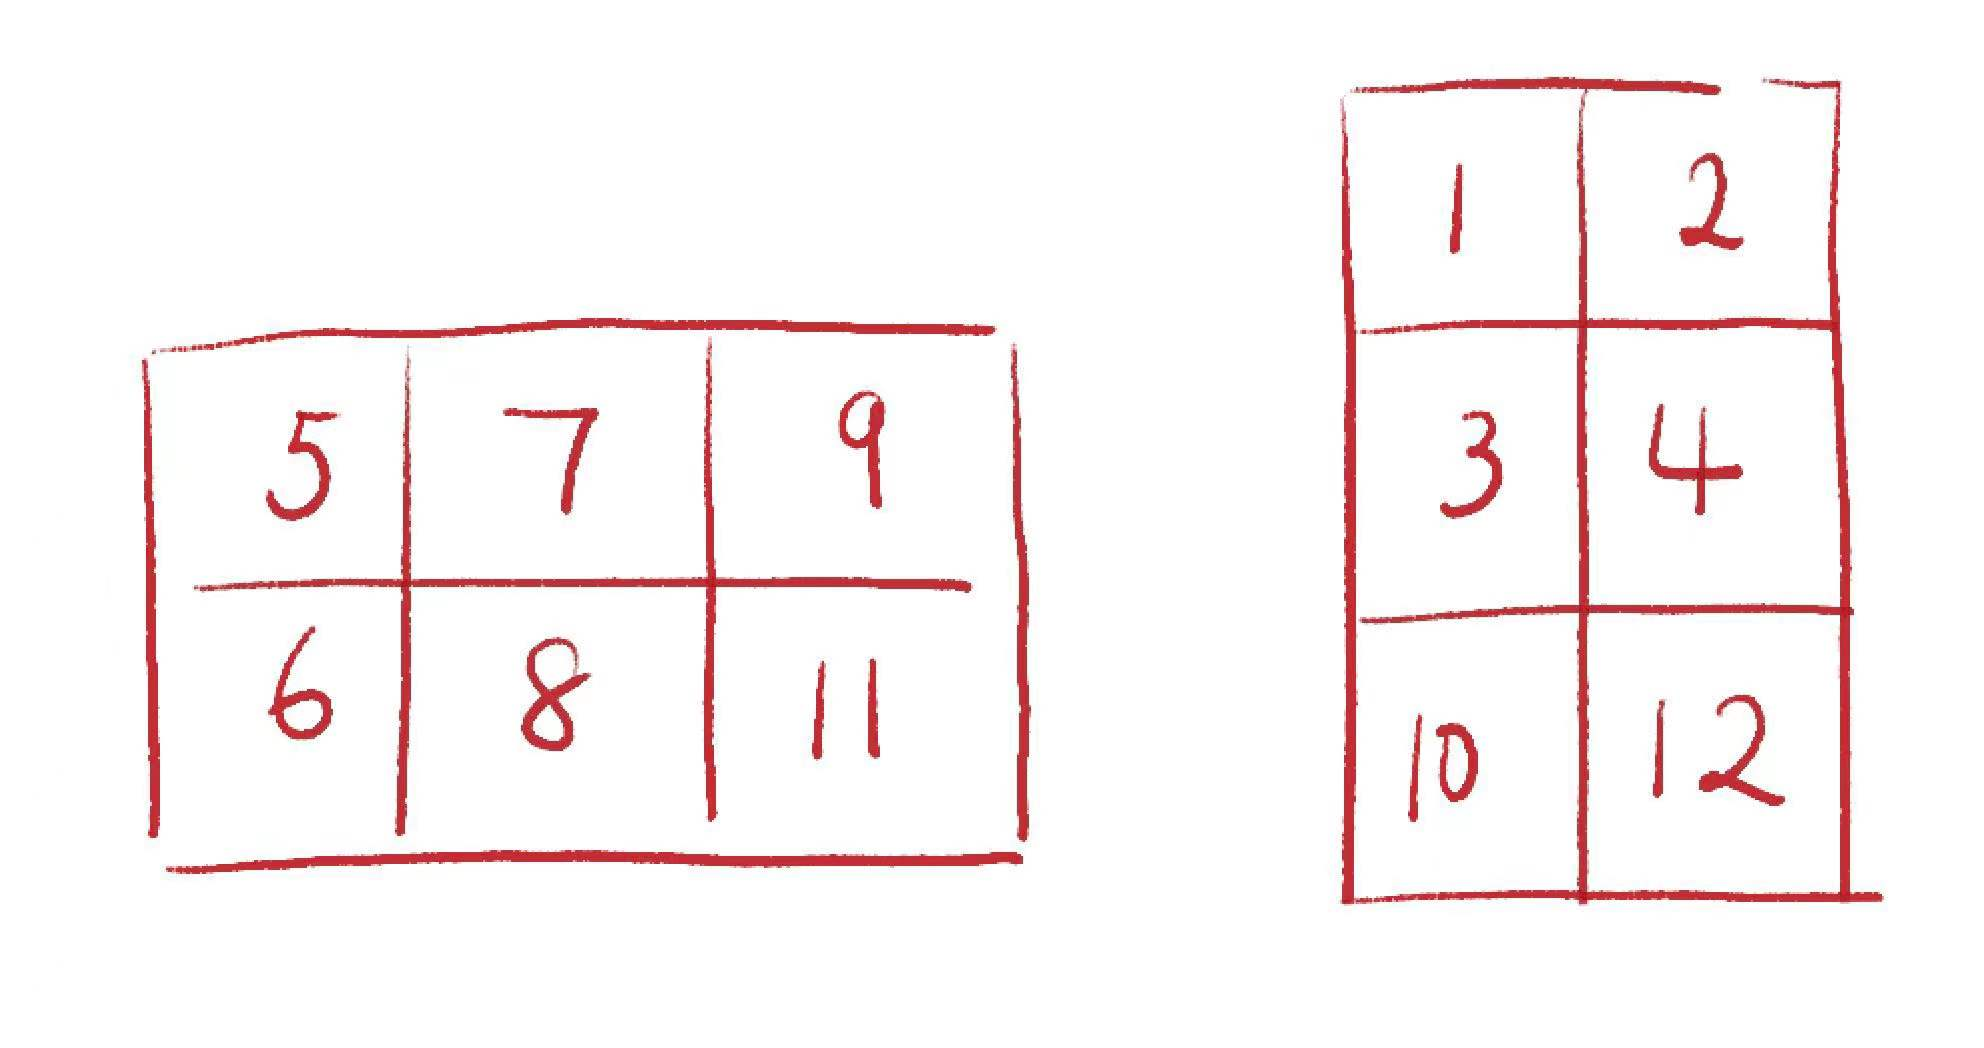 5 7 9
6 8 11
1 2
3 4
10 12